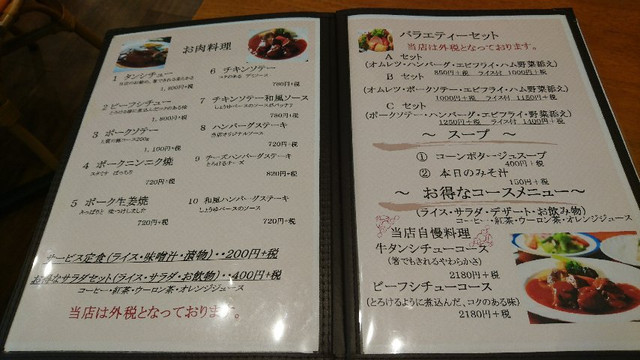 お肉料理
1 タンシチュー
1,800円+税
2 ビーフシチュー
とろける様に煮込んだコクのある味
1,800円+税
3 ポークソテー
上質の豚ロース200g
1,100円+税
4 ポークニンニク焼
スタミナ ばっちり
720円+税
5 ポーク生姜焼
720円+税
6 チキンソテー
780円+税
7 チキンソテー和風ソース
780円+税
8 ハンバーグステーキ
当店オリジナルソース
720円+税
9 チーズハンバーグステーキ
とろけるチーズ
820円+税
10 和風ハンバーグステーキ
しょうゆベースのソース
720円+税
サービス定食(ライス・味噌汁・漬物)・・200円+税
お得なサラダセット(ライス・サラダ・お飲物)・・400円+税
コーヒー・紅茶・ウーロン茶・オレンジジュース
当店は外税となっております。
バラエティーセット
当店は外税となっております。
A セット
(オムレツ・ハンバーグ・エビフライ・ハム野菜添え)
850円+税 ライス付 1000円+税
B セット
(オムレツ・ポークソテー・エビフライ・ハム野菜添え)
1000円+税 ライス付 1150円+税
C セット
(ポークソテー・ハンバーグ・エビフライ・野菜添え)
1250円+税 ライス付 1400円+税
~ スープ ~
① コーンポタージュスープ
400円+税
② 本日のみそ汁
150円+税
~ お得なコースメニュー ~
(ライス・サラダ・デザート・お飲み物)
コーヒー・紅茶・ウーロン茶・オレンジジュース
当店自慢料理
牛タンシチューコース
(箸でもきれるやわらかさ)
2180円+税
ビーフシチューコース
(とろけるように煮込んだ、コクのある味)
2180円+税